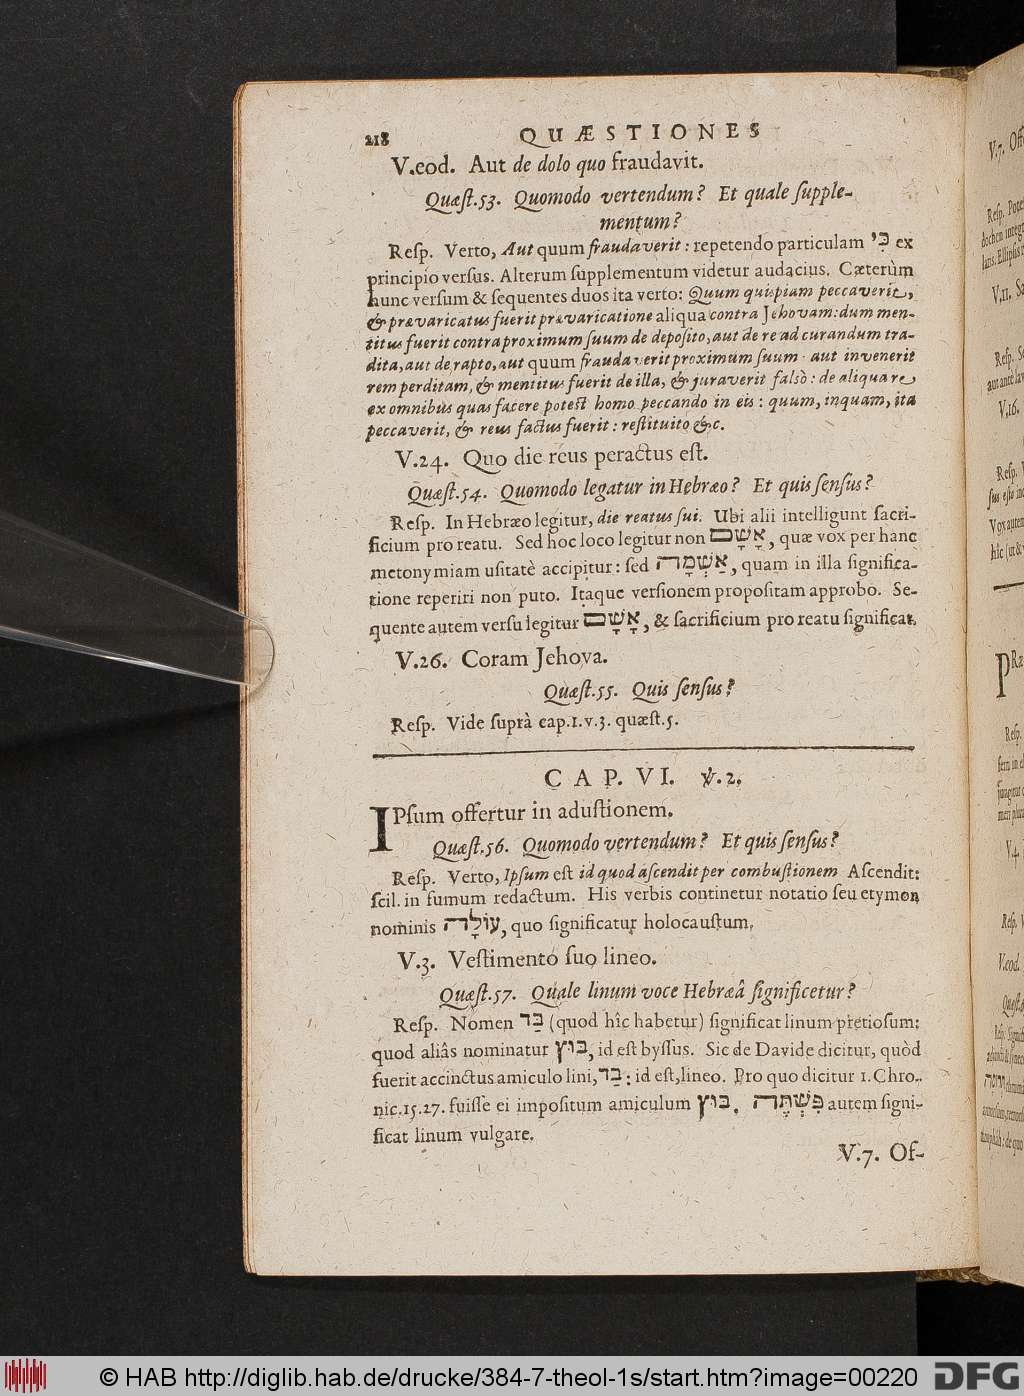 218 QUÆSTIONES
V.eod. Aut de dolo quo fraudavit.
Quæſt.53. Quomodo vertendum? Et quale ſupple-
mentum?
Reſp. Verto, Aut quum fraudaverit: repetendo particulam כִּי ex
principio verſus. Alterum ſupplementum videtur audacius. Cæterùm
hunc verſum & ſequentes duos ita verto: Quum quiſpiam peccaverit,
& prævaricatus fuerit prævaricatione aliqua contra Jehovam: dum men-
titus fuerit contra proximum ſuum de depoſito, aut de re ad curandum tra-
dita, aut de rapto, aut quum fraudaverit proximum ſuum aut invenerit
rem perditam, & mentitus fuerit de illa, & juraverit falsò: de aliqua re
ex omnibus quas facere poteſt homo peccando in eis: quum, inquam, ita
peccaverit, & reus factus fuerit: reſtituito &c.
V.24. Quo die reus peractus eſt.
Quæſt.54. Quomodo legatur in Hebræo? Et quis ſenſus?
Reſp. In Hebræo legitur, die reatus ſui. Ubi alii intelligunt ſacri-
ficium pro reatu. Sed hoc loco legitur non אָשָׁם, quæ vox per hanc
metonymiam uſitatè accipitur: ſed אַשְׁמָה, quam in illa ſignifica-
tione reperiri non puto. Itaque verſionem propoſitam approbo. Se-
quente autem verſu legitur אָשָׁם, & ſacrificium pro reatu ſignificat.
V.26. Coram Jehova.
Quæſt.55. Quis ſenſus?
Reſp. Vide ſuprà cap.1.v.3. quæſt.5.
CAP. VI. ℣.2.
IPſum offertur in aduſtionem.
Quæſt.56. Quomodo vertendum? Et quis ſenſus?
Reſp. Verto, Ipſum eſt id quod aſcendit per combuſtionem Aſcendit:
ſcil. in fumum redactum. His verbis continetur notatio ſeu etymon
nominis עוֹלָה, quo ſignificatur holocauſtum.
V.3. Veſtimento ſuo lineo.
Quæſt.57. Quale linum voce Hebræâ ſignificetur?
Reſp. Nomen בַּד (quod hîc habetur) ſignificat linum pretioſum:
quod aliâs nominatur בּוּץ, id eſt byſſus. Sic de Davide dicitur, quòd
fuerit accinctus amiculo lini, בַּד: id eſt, lineo. Pro quo dicitur 1. Chro-
nic.15.27. fuiſſe ei impoſitum amiculum בּוּץ. פִּשְׁתֶּה autem ſigni-
ficat linum vulgare.
V.7. Of-
© HAB http://diglib.hab.de/drucke/384-7-theol-1s/start.htm?image=00220
DFG